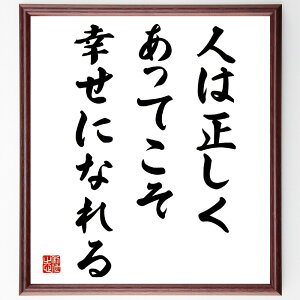 人は正しく
あってこそ
幸せになれる